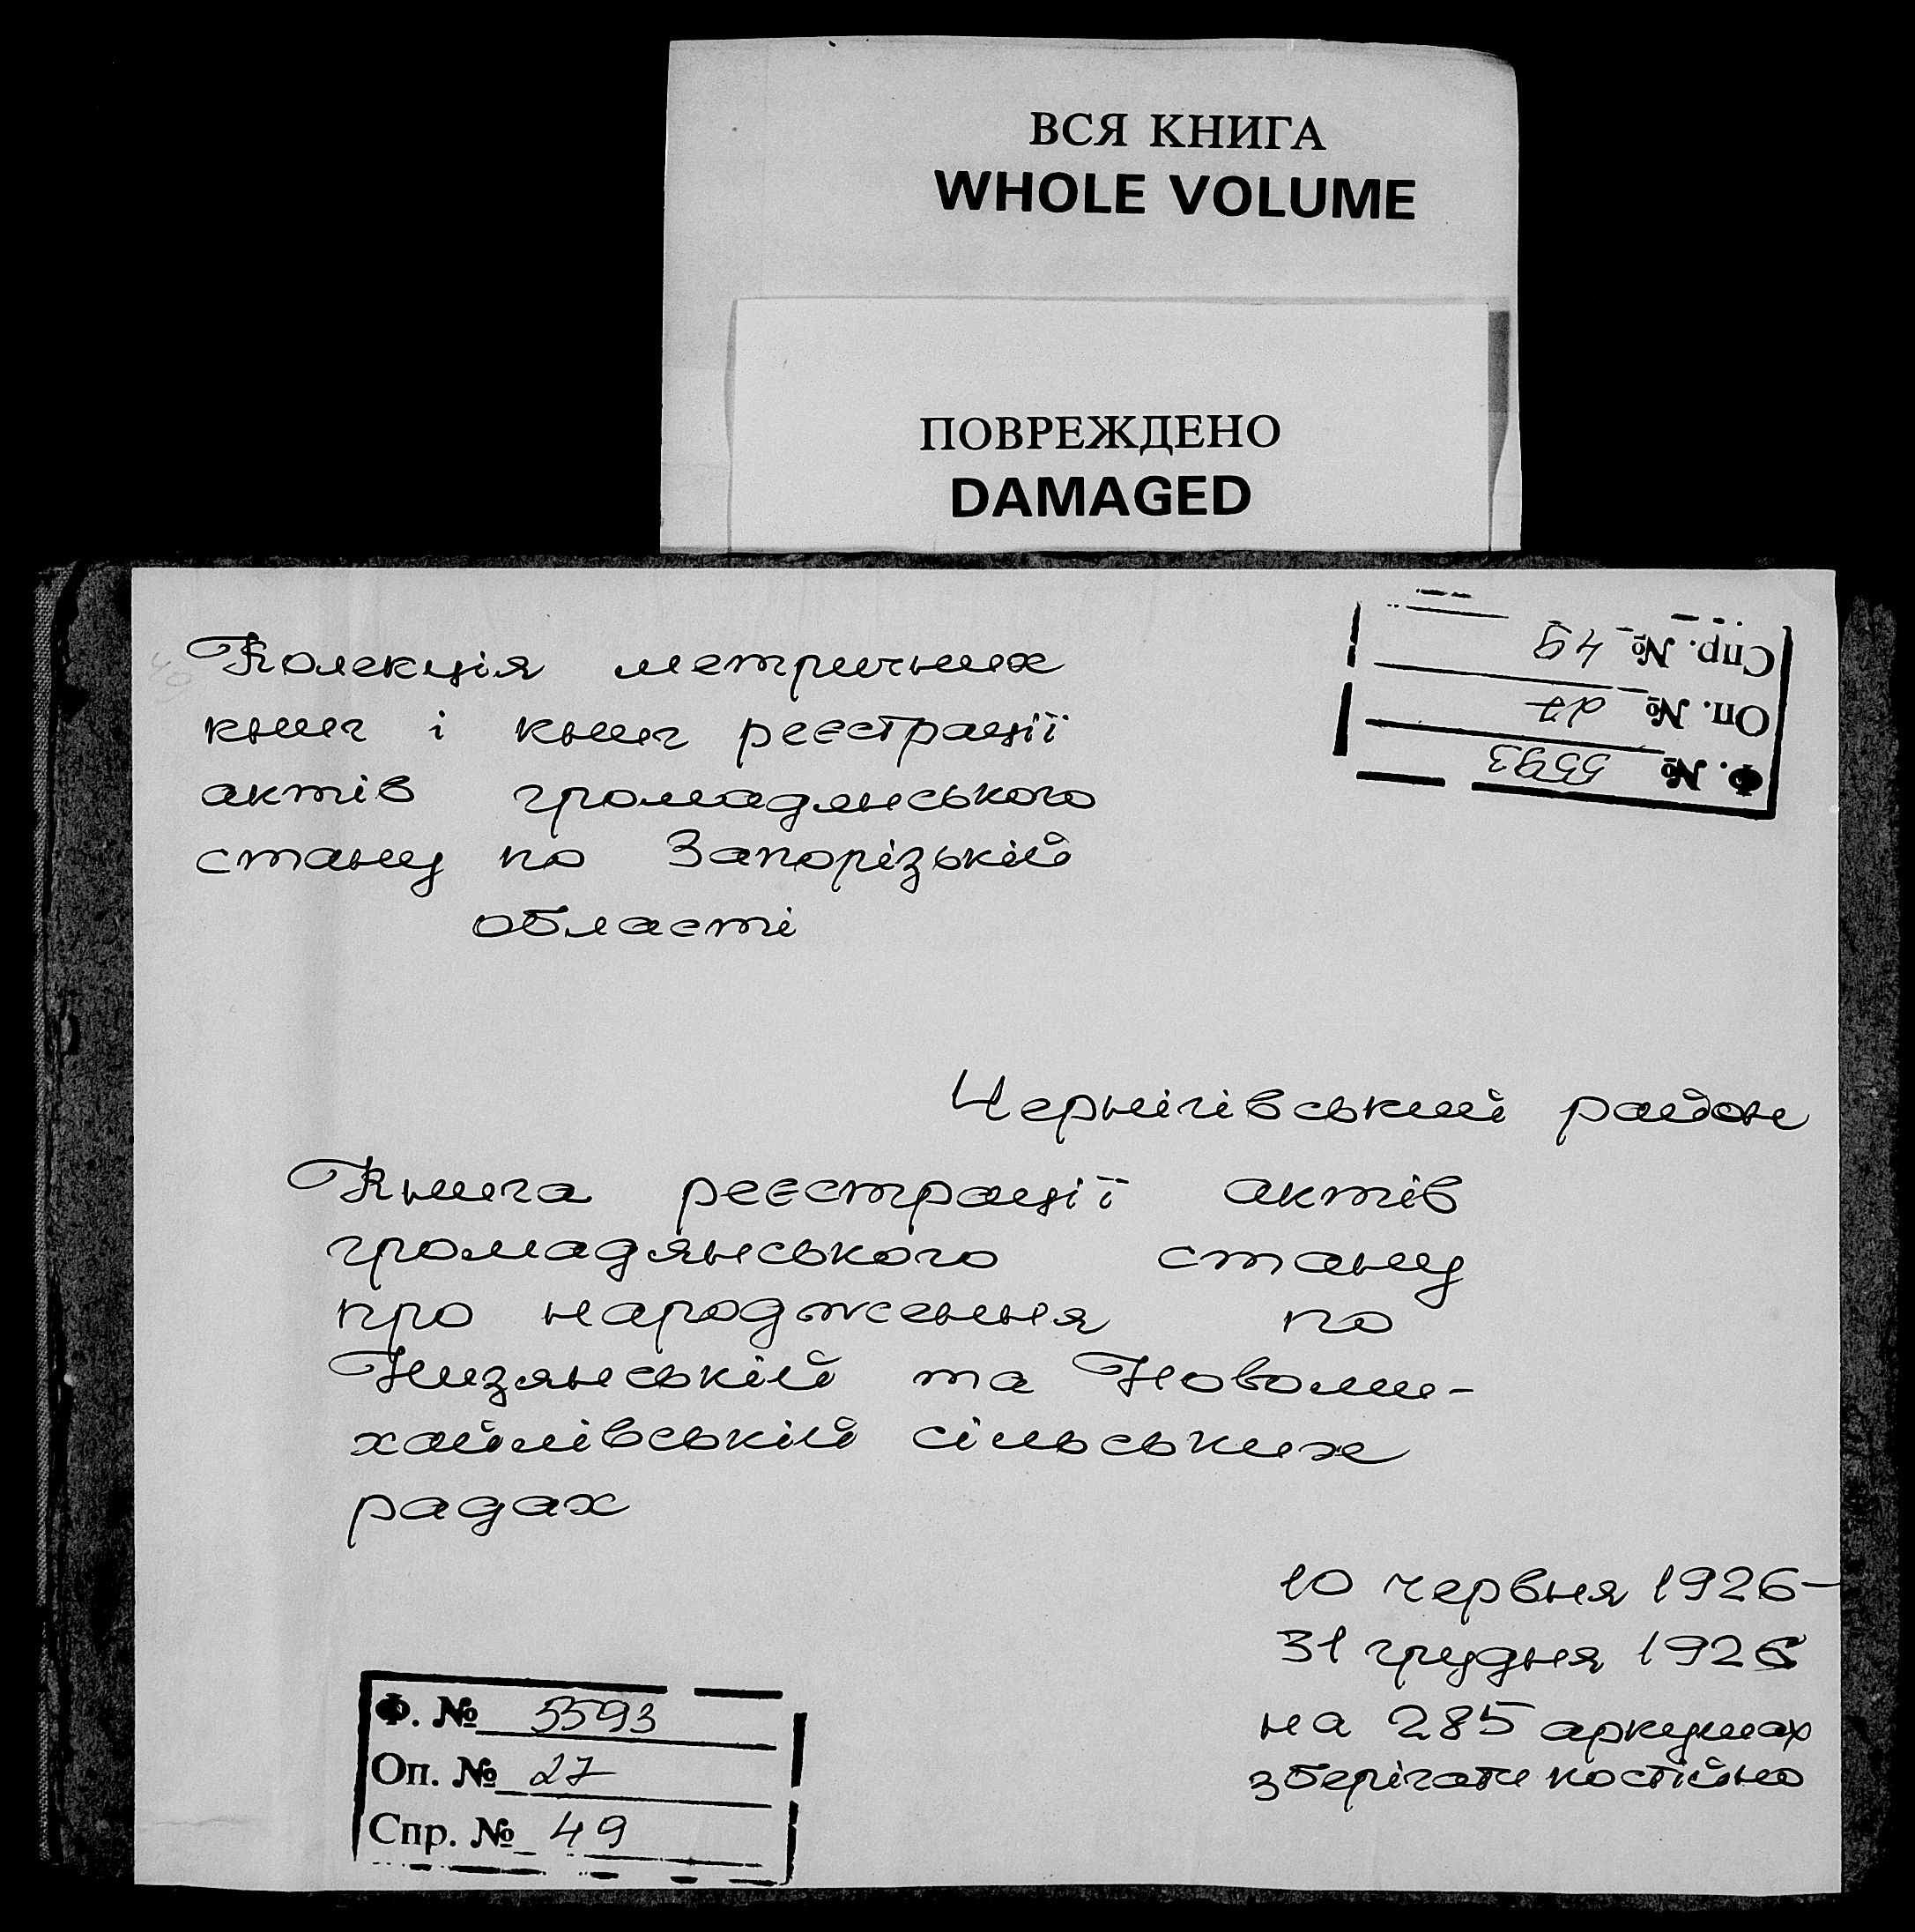 ВСЯ КНИГА
WHOLE VOLUME
ПОВРЕЖДЕНО
DAMAGED
Спр. № 49
Оп. № 27
Ф. № 5593
Колекція метричних
книг і книг реєстрації
актів громадянського
стану по Запорізькій
області
Чернігівський район
Книга реєстрації актів
громадянського стану
про народження по
Низянській та Новоми-
хайлівській сільських
радах
10 червня 1926-
31 грудня 1926
на 285 аркушах
зберігати постійно
Ф. № 5593
Оп. № 27
Спр. № 49